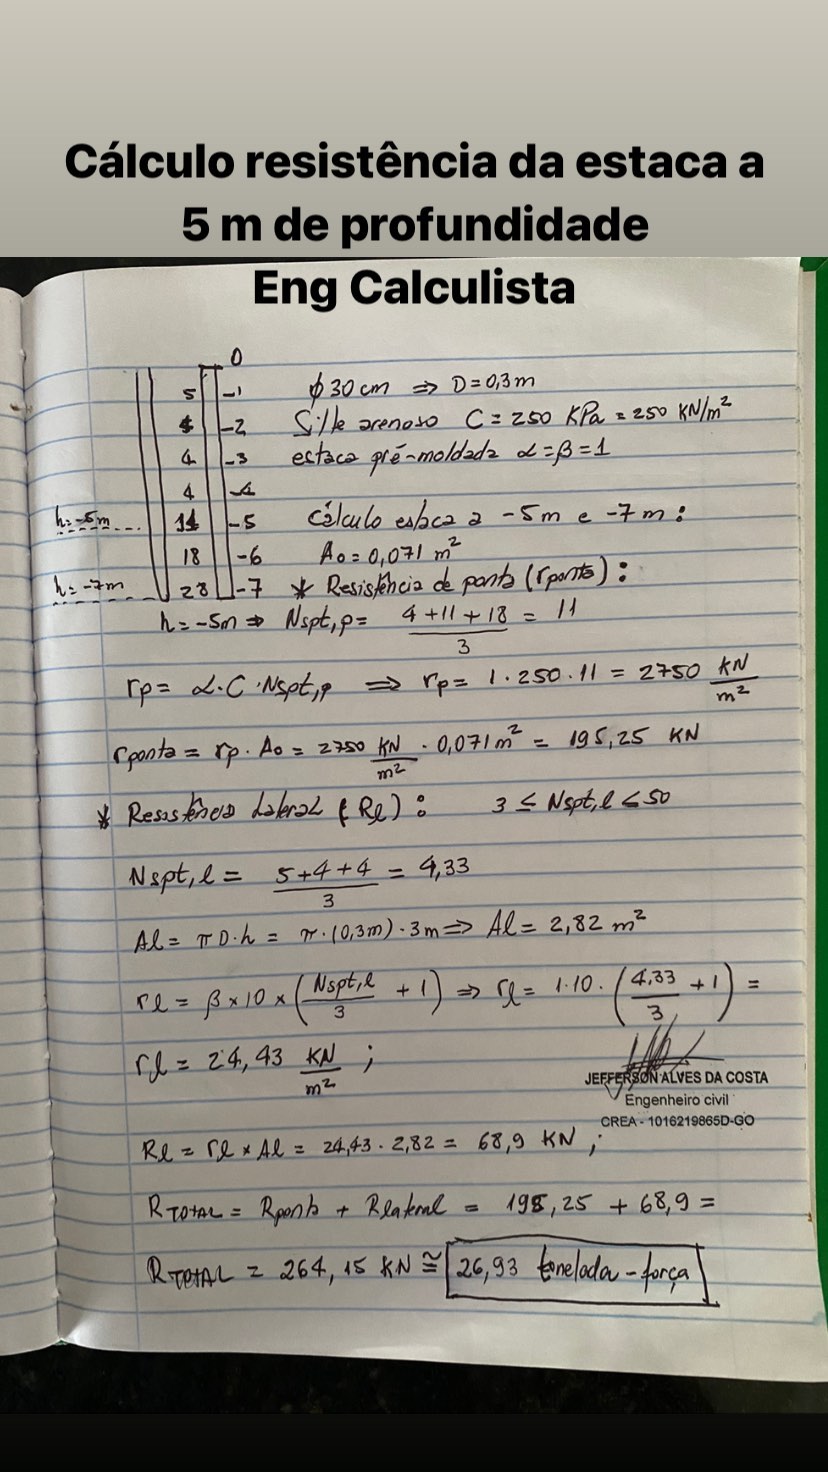 Cálculo resistência da estaca a
5 m de profundidade
Eng Calculista
0
5 -1 ϕ 30 cm ⇒ D = 0,3 m
-2 Silte arenoso C = 250 KPa = 250 KN/m²
4 -3 estaca pré-moldada α = β = 1
4 -4
h=-5m 11 -5 Cálculo estaca a -5m e -7m :
18 -6 Ao = 0,071 m²
h=-7m 28 -7 * Resistência de ponta (rponta) :
h = -5m ⇒ Nspt,p = (4 + 11 + 18)/3 = 11
rp = α . C . Nspt,p ⇒ rp = 1 . 250 . 11 = 2750 KN/m²
rponta = rp . Ao = 2750 KN/m² . 0,071 m² = 195,25 KN
* Resistência Lateral (Rl) : 3 ≤ Nspt,l ≤ 50
Nspt,l = (5+4+4)/3 = 4,33
Al = π D . h = π . (0,3m) . 3m ⇒ Al = 2,82 m²
rl = β × 10 × (Nspt,l/3 + 1) ⇒ rl = 1 . 10 . (4,33/3 + 1) =
rl = 24,43 KN/m² ;
JEFFERSON ALVES DA COSTA
Engenheiro civil
CREA - 1016219865D-GO
Rl = rl × Al = 24,43 . 2,82 = 68,9 KN ;
RTOTAL = Rponta + Rlateral = 195,25 + 68,9 =
RTOTAL = 264,15 KN ≅ 26,93 tonelada - força